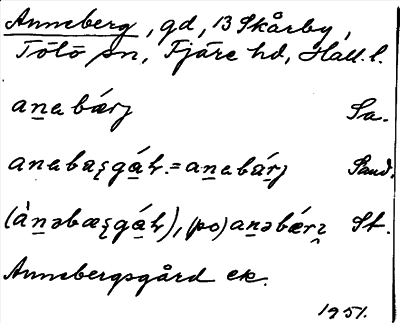 Anneberg, gd, 13 Skårby,
Tölö sn, Fjäre hd, Hall. l.
an̲abǽrj Sa.
anabæs̨gá̲h. = an̲abá̲r̲j Sand.
(àn̲əbæs̨gá̲h), (po) an̲əbǽrj St.
Annebergsgård ek.
1951.